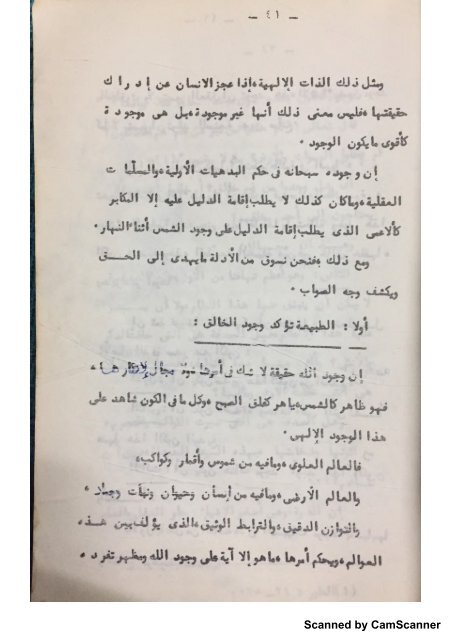 - ٤١ -
ومثل ذلك الذات الإلهية، فإذا عجز الانسان عن إدراك
حقيقتها، فليس معنى ذلك أنها غير موجودة، بل هى موجودة
كأقوى ما يكون الوجود .
إن وجوده سبحانه فى حكم البدهيات الأولية، والمسلمات
العقلية، وما كان كذلك لا يطلب إقامة الدليل عليه إلا المكابر
كالأعمى الذى يطلب إقامة الدليل على وجود الشمس أثناء النهار .
ومع ذلك، فنحن نسوق من الأدلة ما يهدى إلى الحق
ويكشف وجه الصواب .
أولا : الطبيعة تؤكد وجود الخالق :
إن وجود الله حقيقة لا شك فى أمرها مجال لإنكارها،
فهو ظاهر كالشمس، باهر كفلق الصبح، وكل ما فى الكون شاهد على
هذا الوجود الإلهى .
فالعالم العلوى، ومافيه من شموس وأقمار وكواكب،
والعالم الأرضى، ومافيه من إنسان وحيوان ونبات وجماد،
والتوازن الدقيق، والترابط الوثيق، الذى يؤلف بين هذه
العوالم، ويحكم أمرها، ماهو إلا آية على وجود الله ومظهر تفرده
Scanned by CamScanner